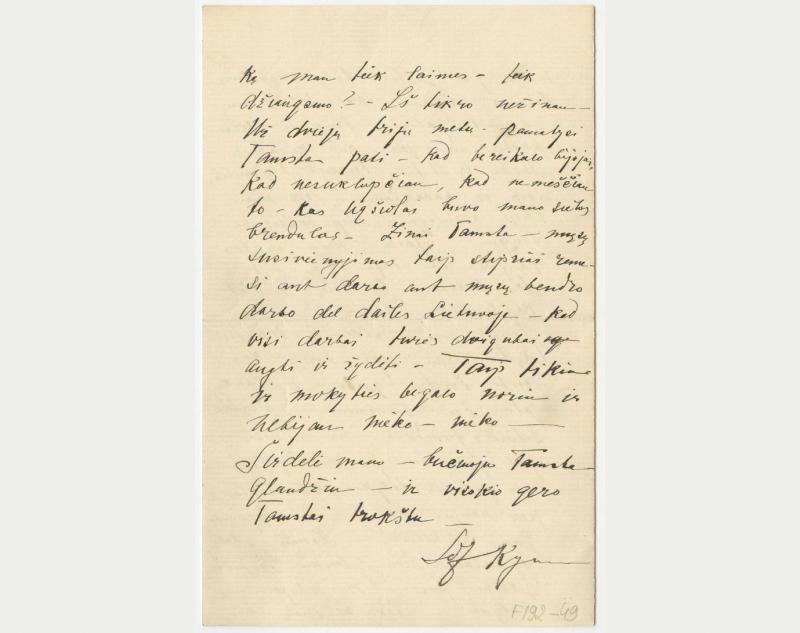 Ką man tiek laimes – tiek
džiaugsmo? – Iš tikro nežinau –
Už dviejų trijų metų – pamatysi
Tamsta pati – kad be reikalo bijojai,
kad nesuklupčiau, kad nemeščiau
to – kas ligšiolai buvo mano sielos
brendulas – Žinai Tamsta – mųsų
susivienyjimas taip stipriai reme-
si ant darbo ant mųsų bendro
darbo del dailes Lietuvoje – kad
visi darbai turės dvigubai
augti ir žydėti – Taip tikiu
ir mokyties begalo noriu ir
nebijau nieko – nieko –
Širdele mano – bučiuoju Tamsta –
Glaudžiu – ir visokio gero
Tamstai trokštu –
Zof Kym
F192–49